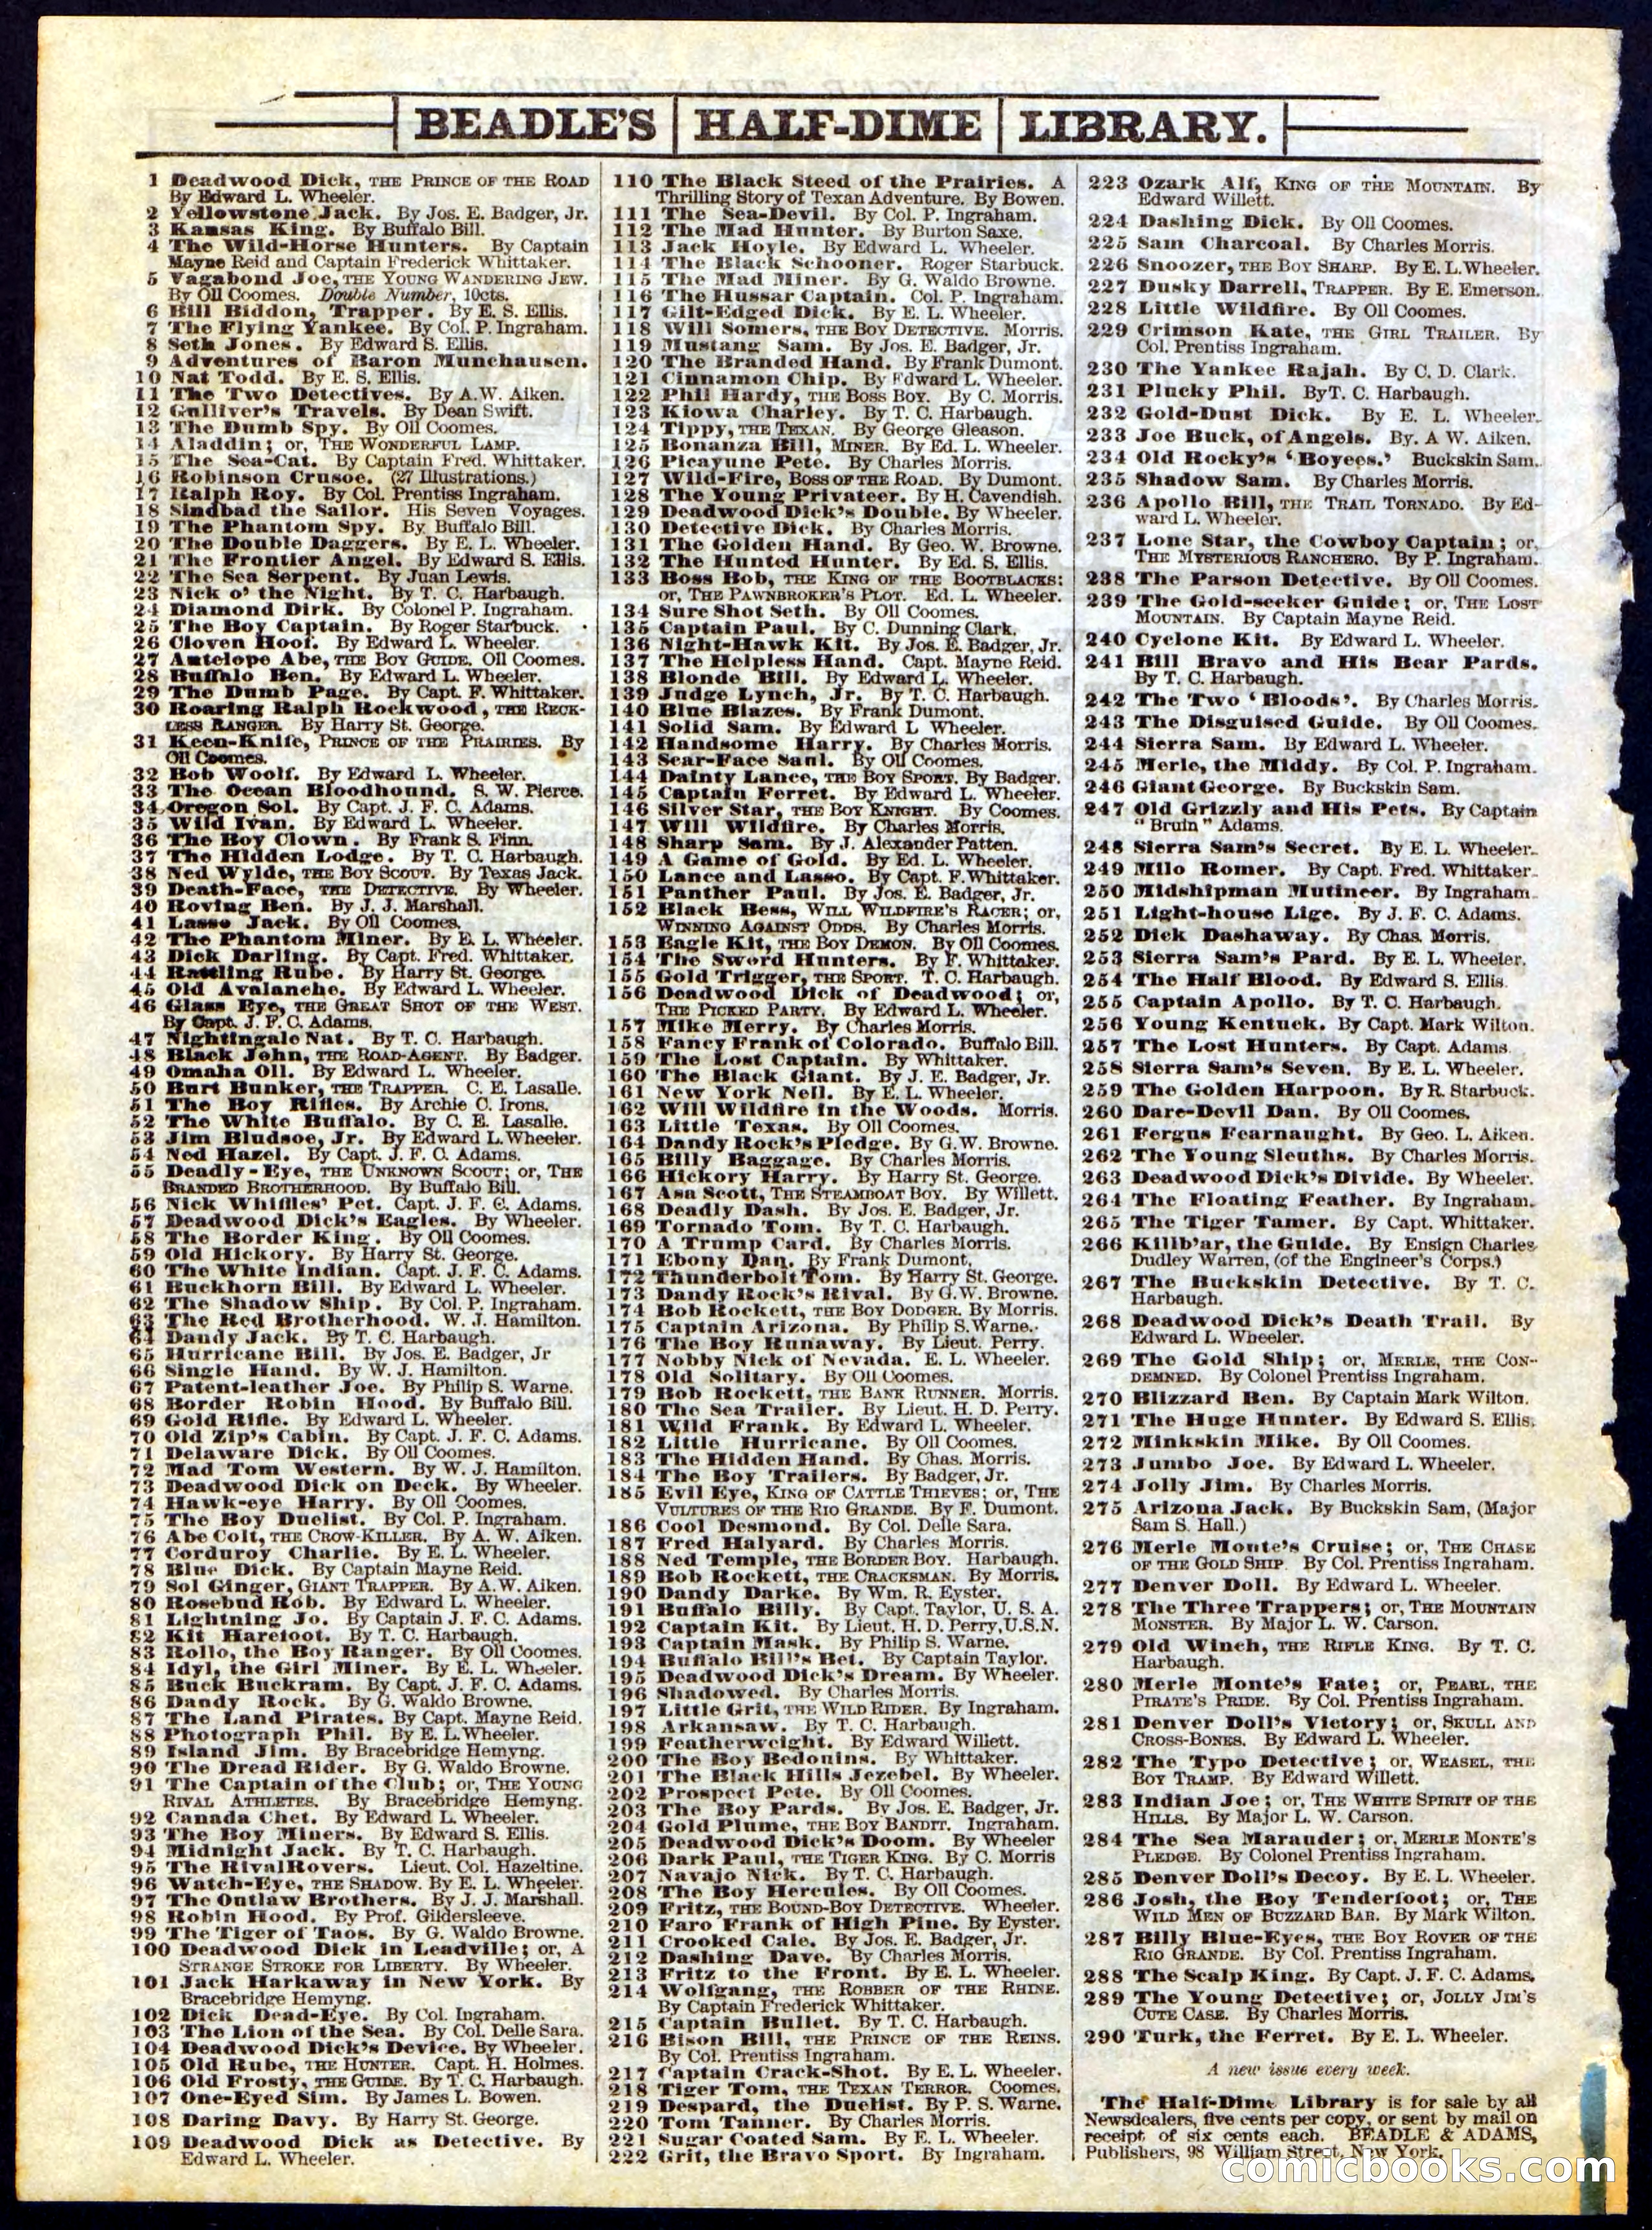 BEADLE'S HALF-DIME LIBRARY.
1 Deadwood Dick, THE PRINCE OF THE ROAD
By Edward L. Wheeler.
2 Yellowstone Jack. By Jos. E. Badger, Jr.
3 Kansas King. By Buffalo Bill.
4 The Wild-Horse Hunters. By Captain
Mayne Reid and Captain Frederick Whittaker.
5 Vagabond Joe, THE YOUNG WANDERING JEW.
By Oll Coomes. Double Number, 10cts.
6 Bill Biddon, Trapper. By E. S. Ellis.
7 The Flying Yankee. By Col. P. Ingraham.
8 Seth Jones. By Edward S. Ellis.
9 Adventures of Baron Munchausen.
10 Nat Todd. By E. S. Ellis.
11 The Two Detectives. By A. W. Aiken.
12 Gulliver's Travels. By Dean Swift.
13 The Dumb Spy. By Oll Coomes.
14 Aladdin; or, THE WONDERFUL LAMP.
15 The Sea-Cat. By Captain Fred. Whittaker.
16 Robinson Crusoe. (27 Illustrations.)
17 Ralph Roy. By Col. Prentiss Ingraham.
18 Sindbad the Sailor. His Seven Voyages.
19 The Phantom Spy. By Buffalo Bill.
20 The Double Daggers. By E. L. Wheeler.
21 The Frontier Angel. By Edward S. Ellis.
22 The Sea Serpent. By Juan Lewis.
23 Nick o' the Night. By T. C. Harbaugh.
24 Diamond Dirk. By Colonel P. Ingraham.
25 The Boy Captain. By Roger Starbuck.
26 Cloven Hoof. By Edward L. Wheeler.
27 Antelope Abe, THE BOY GUIDE. Oll Coomes.
28 Buffalo Ben. By Edward L. Wheeler.
29 The Dumb Page. By Capt. F. Whittaker.
30 Roaring Ralph Rockwood, THE RECK-
LESS RANGER. By Harry St. George.
31 Keen-Knife, PRINCE OF THE PRAIRIES. By
Oll Coomes.
32 Bob Woolf. By Edward L. Wheeler.
33 The Ocean Bloodhound. S. W. Pierce.
34 Oregon Sol. By Capt. J. F. C. Adams.
35 Wild Ivan. By Edward L. Wheeler.
36 The Boy Clown. By Frank S. Finn.
37 The Hidden Lodge. By T. C. Harbaugh.
38 Ned Wylde, THE BOY SCOUT. By Texas Jack.
39 Death-Face, THE DETECTIVE. By Wheeler.
40 Roving Ben. By J. J. Marshall.
41 Lasso Jack. By Oll Coomes.
42 The Phantom Miner. By E. L. Wheeler.
43 Dick Darling. By Capt. Fred. Whittaker.
44 Rattling Rube. By Harry St. George.
45 Old Avalanche. By Edward L. Wheeler.
46 Glass Eye, THE GREAT SHOT OF THE WEST.
By Capt. J. F. C. Adams.
47 Nightingale Nat. By T. C. Harbaugh.
48 Black John, THE ROAD-AGENT. By Badger.
49 Omaha Oll. By Edward L. Wheeler.
50 Burt Bunker, THE TRAPPER. C. E. Lasalle.
51 The Boy Rifles. By Archie C. Irons.
52 The White Buffalo. By C. E. Lasalle.
53 Jim Bludsoe, Jr. By Edward L. Wheeler.
54 Ned Hazel. By Capt. J. F. C. Adams.
55 Deadly-Eye, THE UNKNOWN SCOUT; or, THE
BRANDED BROTHERHOOD. By Buffalo Bill.
56 Nick Whiffles' Pet. Capt. J. F. C. Adams.
57 Deadwood Dick's Eagles. By Wheeler.
58 The Border King. By Oll Coomes.
59 Old Hickory. By Harry St. George.
60 The White Indian. Capt. J. F. C. Adams.
61 Buckhorn Bill. By Edward L. Wheeler.
62 The Shadow Ship. By Col. P. Ingraham.
63 The Red Brotherhood. W. J. Hamilton.
64 Dandy Jack. By T. C. Harbaugh.
65 Hurricane Bill. By Jos. E. Badger, Jr
66 Single Hand. By W. J. Hamilton.
67 Patent-leather Joe. By Philip S. Warne.
68 Border Robin Hood. By Buffalo Bill.
69 Gold Rifle. By Edward L. Wheeler.
70 Old Zip's Cabin. By Capt. J. F. C. Adams.
71 Delaware Dick. By Oll Coomes.
72 Mad Tom Western. By W. J. Hamilton.
73 Deadwood Dick on Deck. By Wheeler.
74 Hawk-eye Harry. By Oll Coomes.
75 The Boy Duelist. By Col. P. Ingraham.
76 Abe Colt, THE CROW-KILLER. By A. W. Aiken.
77 Corduroy Charlie. By E. L. Wheeler.
78 Blue Dick. By Captain Mayne Reid.
79 Sol Ginger, GIANT TRAPPER. By A. W. Aiken.
80 Rosebud Rob. By Edward L. Wheeler.
81 Lightning Jo. By Captain J. F. C. Adams.
82 Kit Harefoot. By T. C. Harbaugh.
83 Rollo, the Boy Ranger. By Oll Coomes.
84 Idyl, the Girl Miner. By E. L. Wheeler.
85 Buck Buckram. By Capt. J. F. C. Adams.
86 Dandy Rock. By G. Waldo Browne.
87 The Land Pirates. By Capt. Mayne Reid.
88 Photograph Phil. By E. L. Wheeler.
89 Island Jim. By Bracebridge Hemyng.
90 The Dread Rider. By G. Waldo Browne.
91 The Captain of the Club; or, THE YOUNG
RIVAL ATHLETES. By Bracebridge Hemyng.
92 Canada Chet. By Edward L. Wheeler.
93 The Boy Miners. By Edward S. Ellis.
94 Midnight Jack. By T. C. Harbaugh.
95 The Rival Rovers. Lieut. Col. Hazeltine.
96 Watch-Eye, THE SHADOW. By E. L. Wheeler.
97 The Outlaw Brothers. By J. J. Marshall.
98 Robin Hood. By Prof. Gildersleeve.
99 The Tiger of Taos. By G. Waldo Browne.
100 Deadwood Dick in Leadville; or, A
STRANGE STROKE FOR LIBERTY. By Wheeler.
101 Jack Harkaway in New York. By
Bracebridge Hemyng.
102 Dick Dead-Eye. By Col. Ingraham.
103 The Lion of the Sea. By Col. Delle Sara.
104 Deadwood Dick's Device. By Wheeler.
105 Old Rube, THE HUNTER. Capt. H. Holmes.
106 Old Frosty, THE GUIDE. By T. C. Harbaugh.
107 One-Eyed Sim. By James L. Bowen.
108 Daring Davy. By Harry St. George.
109 Deadwood Dick as Detective. By
Edward L. Wheeler.
110 The Black Steed of the Prairies. A
Thrilling Story of Texan Adventure. By Bowen.
111 The Sea-Devil. By Col. P. Ingraham.
112 The Mad Hunter. By Burton Saxe.
113 Jack Hoyle. By Edward L. Wheeler.
114 The Black Schooner. Roger Starbuck.
115 The Mad Miner. By G. Waldo Browne.
116 The Hussar Captain. Col. P. Ingraham.
117 Gilt-Edged Dick. By E. L. Wheeler.
118 Will Somers, THE BOY DETECTIVE. Morris.
119 Mustang Sam. By Jos. E. Badger, Jr.
120 The Branded Hand. By Frank Dumont.
121 Cinnamon Chip. By Edward L. Wheeler.
122 Phil Hardy, THE BOSS BOY. By C. Morris.
123 Kiowa Charley. By T. C. Harbaugh.
124 Tippy, THE TEXAN. By George Gleason.
125 Bonanza Bill, MINER. By Ed. L. Wheeler.
126 Picayune Pete. By Charles Morris.
127 Wild-Fire, BOSS OF THE ROAD. By Dumont.
128 The Young Privateer. By H. Cavendish.
129 Deadwood Dick's Double. By Wheeler.
130 Detective Dick. By Charles Morris.
131 The Golden Hand. By Geo. W. Browne.
132 The Hunted Hunter. By Ed. S. Ellis.
133 Boss Bob, THE KING OF THE BOOTBLACKS;
or, THE PAWNBROKER'S PLOT. Ed. L. Wheeler.
134 Sure Shot Seth. By Oll Coomes.
135 Captain Paul. By C. Dunning Clark.
136 Night-Hawk Kit. By Jos. E. Badger, Jr.
137 The Helpless Hand. Capt. Mayne Reid.
138 Blonde Bill. By Edward L. Wheeler.
139 Judge Lynch, Jr. By T. C. Harbaugh.
140 Blue Blazes. By Frank Dumont.
141 Solid Sam. By Edward L Wheeler.
142 Handsome Harry. By Charles Morris.
143 Scar-Face Saul. By Oll Coomes.
144 Dainty Lance, THE BOY SPORT. By Badger.
145 Captain Ferret. By Edward L. Wheeler.
146 Silver Star, THE BOY KNIGHT. By Coomes.
147 Will Wildfire. By Charles Morris.
148 Sharp Sam. By J. Alexander Patten.
149 A Game of Gold. By Ed. L. Wheeler.
150 Lance and Lasso. By Capt. F. Whittaker.
151 Panther Paul. By Jos. E. Badger, Jr.
152 Black Bess, WILL WILDFIRE'S RACER; or,
WINNING AGAINST ODDS. By Charles Morris.
153 Eagle Kit, THE BOY DEMON. By Oll Coomes.
154 The Sword Hunters. By F. Whittaker.
155 Gold Trigger, THE SPORT. T. C. Harbaugh.
156 Deadwood Dick of Deadwood; or,
THE PICKED PARTY. By Edward L. Wheeler.
157 Mike Merry. By Charles Morris.
158 Fancy Frank of Colorado. Buffalo Bill.
159 The Lost Captain. By Whittaker.
160 The Black Giant. By J. E. Badger, Jr.
161 New York Nell. By E. L. Wheeler.
162 Will Wildfire in the Woods. Morris.
163 Little Texas. By Oll Coomes.
164 Dandy Rock's Pledge. By G. W. Browne.
165 Billy Baggage. By Charles Morris.
166 Hickory Harry. By Harry St. George.
167 Asa Scott, THE STEAMBOAT BOY. By Willett.
168 Deadly Dash. By Jos. E. Badger, Jr.
169 Tornado Tom. By T. C. Harbaugh.
170 A Trump Card. By Charles Morris.
171 Ebony Dan. By Frank Dumont.
172 Thunderbolt Tom. By Harry St. George.
173 Dandy Rock's Rival. By G. W. Browne.
174 Bob Rockett, THE BOY DODGER. By Morris.
175 Captain Arizona. By Philip S. Warne.
176 The Boy Runaway. By Lieut. Perry.
177 Nobby Nick of Nevada. E. L. Wheeler.
178 Old Solitary. By Oll Coomes.
179 Bob Rockett, THE BANK RUNNER. Morris.
180 The Sea Trailer. By Lieut. H. D. Perry.
181 Wild Frank. By Edward L. Wheeler.
182 Little Hurricane. By Oll Coomes.
183 The Hidden Hand. By Chas. Morris.
184 The Boy Trailers. By Badger, Jr.
185 Evil Eye, KING OF CATTLE THIEVES; or, THE
VULTURES OF THE RIO GRANDE. By F. Dumont.
186 Cool Desmond. By Col. Delle Sara.
187 Fred Halyard. By Charles Morris.
188 Ned Temple, THE BORDER BOY. Harbaugh.
189 Bob Rockett, THE CRACKSMAN. By Morris.
190 Dandy Darke. By Wm. R. Eyster.
191 Buffalo Billy. By Capt. Taylor, U. S. A.
192 Captain Kit. By Lieut. H. D. Perry, U.S.N.
193 Captain Mask. By Philip S. Warne.
194 Buffalo Bill's Bet. By Captain Taylor.
195 Deadwood Dick's Dream. By Wheeler.
196 Shadowed. By Charles Morris.
197 Little Grit, THE WILD RIDER. By Ingraham.
198 Arkansaw. By T. C. Harbaugh.
199 Featherweight. By Edward Willett.
200 The Boy Bedouins. By Whittaker.
201 The Black Hills Jezebel. By Wheeler.
202 Prospect Pete. By Oll Coomes.
203 The Boy Pards. By Jos. E. Badger, Jr.
204 Gold Plume, THE BOY BANDIT. Ingraham.
205 Deadwood Dick's Doom. By Wheeler
206 Dark Paul, THE TIGER KING. By C. Morris
207 Navajo Nick. By T. C. Harbaugh.
208 The Boy Hercules. By Oll Coomes.
209 Fritz, THE BOUND-BOY DETECTIVE. Wheeler.
210 Faro Frank of High Pine. By Eyster.
211 Crooked Cale. By Jos. E. Badger, Jr.
212 Dashing Dave. By Charles Morris.
213 Fritz to the Front. By E. L. Wheeler.
214 Wolfgang, THE ROBBER OF THE RHINE.
By Captain Frederick Whittaker.
215 Captain Bullet. By T. C. Harbaugh.
216 Bison Bill, THE PRINCE OF THE REINS.
By Col. Prentiss Ingraham.
217 Captain Crack-Shot. By E. L. Wheeler.
218 Tiger Tom, THE TEXAN TERROR. Coomes.
219 Despard, the Duelist. By P. S. Warne.
220 Tom Tanner. By Charles Morris.
221 Sugar Coated Sam. By E. L. Wheeler.
222 Grit, the Bravo Sport. By Ingraham.
223 Ozark Alf, KING OF THE MOUNTAIN. By
Edward Willett.
224 Dashing Dick. By Oll Coomes.
225 Sam Charcoal. By Charles Morris.
226 Snoozer, THE BOY SHARP. By E. L. Wheeler.
227 Dusky Darrell, TRAPPER. By E. Emerson.
228 Little Wildfire. By Oll Coomes.
229 Crimson Kate, THE GIRL TRAILER. By
Col. Prentiss Ingraham.
230 The Yankee Rajah. By C. D. Clark.
231 Plucky Phil. By T. C. Harbaugh.
232 Gold-Dust Dick. By E. L. Wheeler.
233 Joe Buck, of Angels. By. A W. Aiken.
234 Old Rocky's 'Boyees.' Buckskin Sam.
235 Shadow Sam. By Charles Morris.
236 Apollo Bill, THE TRAIL TORNADO. By Ed-
ward L. Wheeler.
237 Lone Star, the Cowboy Captain; or,
THE MYSTERIOUS RANCHERO. By P. Ingraham.
238 The Parson Detective. By Oll Coomes.
239 The Gold-seeker Guide; or, THE LOST
MOUNTAIN. By Captain Mayne Reid.
240 Cyclone Kit. By Edward L. Wheeler.
241 Bill Bravo and His Bear Pards.
By T. C. Harbaugh.
242 The Two 'Bloods'. By Charles Morris.
243 The Disguised Guide. By Oll Coomes.
244 Sierra Sam. By Edward L. Wheeler.
245 Merle, the Middy. By Col. P. Ingraham.
246 Giant George. By Buckskin Sam.
247 Old Grizzly and His Pets. By Captain
"Bruin" Adams.
248 Sierra Sam's Secret. By E. L. Wheeler.
249 Milo Romer. By Capt. Fred. Whittaker.
250 Midshipman Mutineer. By Ingraham.
251 Light-house Lige. By J. F. C. Adams.
252 Dick Dashaway. By Chas. Morris.
253 Sierra Sam's Pard. By E. L. Wheeler.
254 The Half Blood. By Edward S. Ellis.
255 Captain Apollo. By T. C. Harbaugh.
256 Young Kentuck. By Capt. Mark Wilton.
257 The Lost Hunters. By Capt. Adams
258 Sierra Sam's Seven. By E. L. Wheeler.
259 The Golden Harpoon. By R. Starbuck.
260 Dare-Devil Dan. By Oll Coomes.
261 Fergus Fearnaught. By Geo. L. Aiken.
262 The Young Sleuths. By Charles Morris.
263 Deadwood Dick's Divide. By Wheeler.
264 The Floating Feather. By Ingraham.
265 The Tiger Tamer. By Capt. Whittaker.
266 Killb'ar, the Guide. By Ensign Charles
Dudley Warren, (of the Engineer's Corps.)
267 The Buckskin Detective. By T. C.
Harbaugh.
268 Deadwood Dick's Death Trail. By
Edward L. Wheeler.
269 The Gold Ship; or, MERLE, THE CON-
DEMNED. By Colonel Prentiss Ingraham.
270 Blizzard Ben. By Captain Mark Wilton.
271 The Huge Hunter. By Edward S. Ellis.
272 Minkskin Mike. By Oll Coomes.
273 Jumbo Joe. By Edward L. Wheeler.
274 Jolly Jim. By Charles Morris.
275 Arizona Jack. By Buckskin Sam, (Major
Sam S. Hall.)
276 Merle Monte's Cruise; or, THE CHASE
OF THE GOLD SHIP. By Col. Prentiss Ingraham.
277 Denver Doll. By Edward L. Wheeler.
278 The Three Trappers; or, THE MOUNTAIN
MONSTER. By Major L. W. Carson.
279 Old Winch, THE RIFLE KING. By T. C.
Harbaugh.
280 Merle Monte's Fate; or, PEARL, THE
PIRATE'S PRIDE. By Col. Prentiss Ingraham.
281 Denver Doll's Victory; or, SKULL AND
CROSS-BONES. By Edward L. Wheeler.
282 The Typo Detective; or, WEASEL, THE
BOY TRAMP. By Edward Willett.
283 Indian Joe; or, THE WHITE SPIRIT OF THE
HILLS. By Major L. W. Carson.
284 The Sea Marauder; or, MERLE MONTE'S
PLEDGE. By Colonel Prentiss Ingraham.
285 Denver Doll's Decoy. By E. L. Wheeler.
286 Josh, the Boy Tenderfoot; or, THE
WILD MEN OF BUZZARD BAR. By Mark Wilton.
287 Billy Blue-Eyes, THE BOY ROVER OF THE
RIO GRANDE. By Col. Prentiss Ingraham.
288 The Scalp King. By Capt. J. F. C. Adams.
289 The Young Detective; or, JOLLY JIM'S
CUTE CASE. By Charles Morris.
290 Turk, the Ferret. By E. L. Wheeler.
A new issue every week.
The Half-Dime Library is for sale by all
Newsdealers, five cents per copy, or sent by mail on
receipt of six cents each. BEADLE & ADAMS,
Publishers, 98 William Street, New York.
comicbooks.com